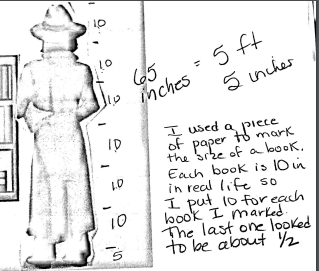 10
10
10
10
10
10
5
65 inches = 5 ft 5 inches
I used a piece
of paper to mark
the size of a book.
Each book is 10 in
in real life so
I put 10 for each
book I marked.
The last one looked
to be about 1/2